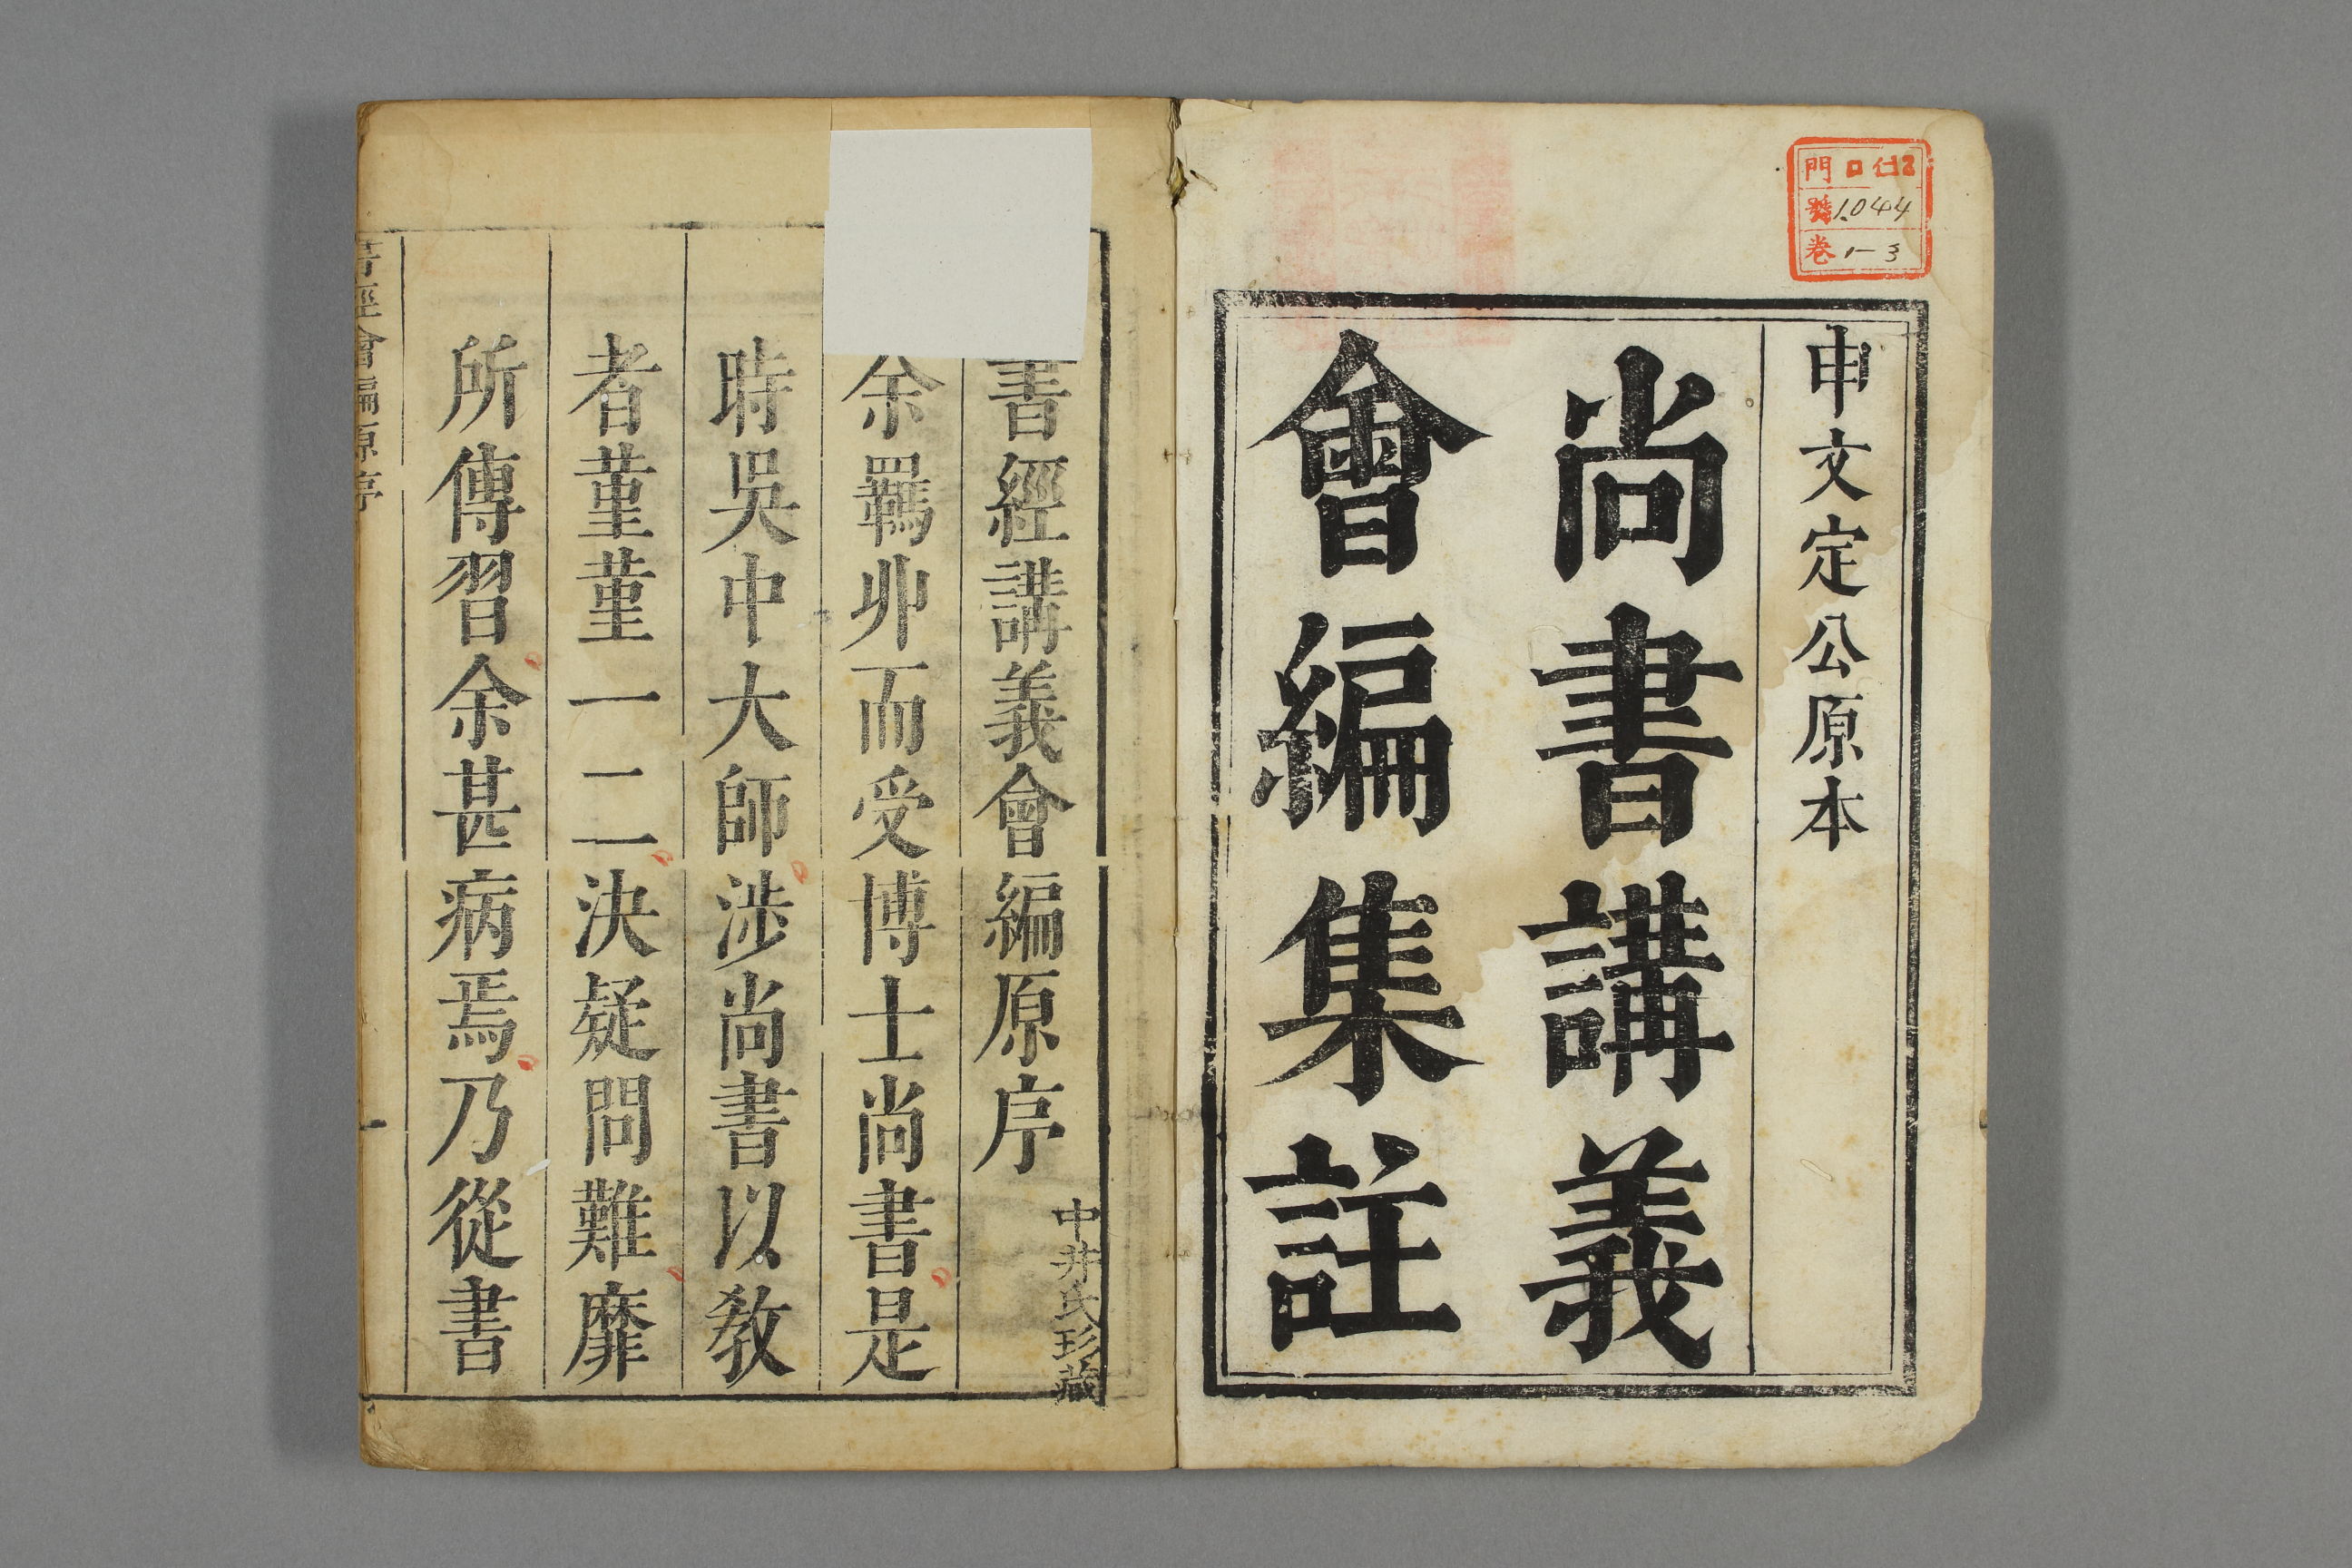 門 ロ 仁
號 1044
卷 1-3
申文定公原本
尚書講義
會編集註
書經講義會編原序
中井氏珍藏
余羈丱而受博士尚書是
時吳中大師涉尚書以敎
者菫菫一二決疑問難靡
所傳習余甚病焉乃從書
書經會編原序
一